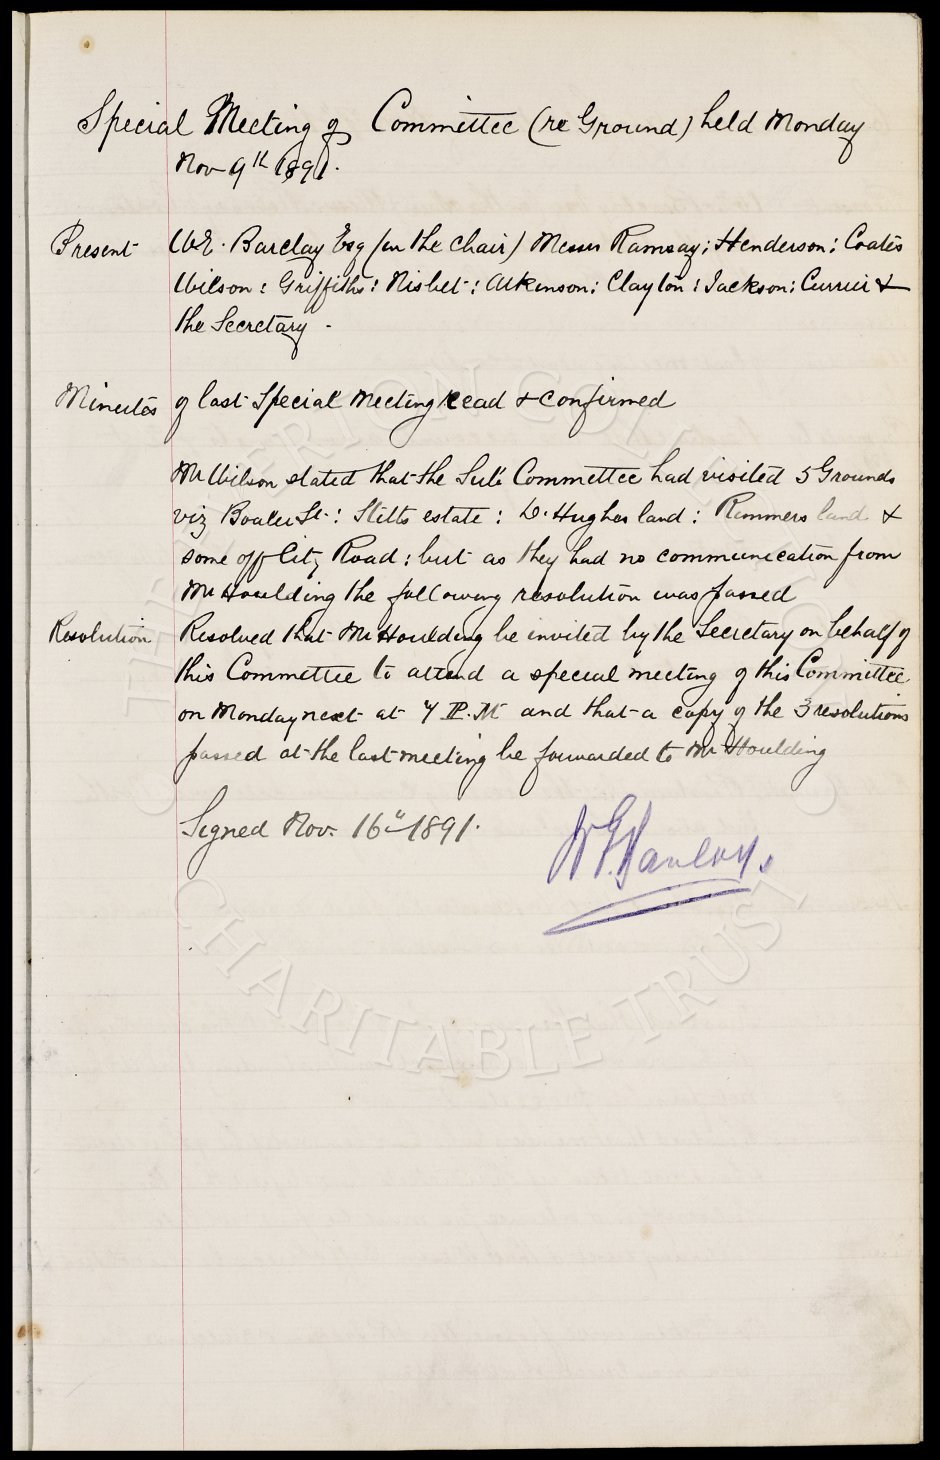 Special Meeting of Committee (re Ground) held Monday
Nov 9th 1891.
Present W.E. Barclay Esq (in the chair) Messrs Ramsay; Henderson: Coates
Wilson: Griffiths: Nisbet: Atkinson: Clayton: Jackson: Currier &
the Secretary.
Minutes of last Special Meeting read & confirmed
Mr Wilson stated that the Sub Committee had visited 5 Grounds
viz Boaler St: Stitts estate: D. Hughes land: Rimmers land &
some off City Road: but as they had no communication from
Mr Houlding the following resolution was passed
Resolution Resolved that Mr Houlding be invited by the Secretary on behalf of
this Committee to attend a special meeting of this Committee
on Monday next at 7 P.M and that a copy of the 3 resolutions
passed at the last meeting be forwarded to Mr Houlding
Signed Nov. 16th 1891.
THE EVERTON COLLECTION
CHARITABLE TRUST